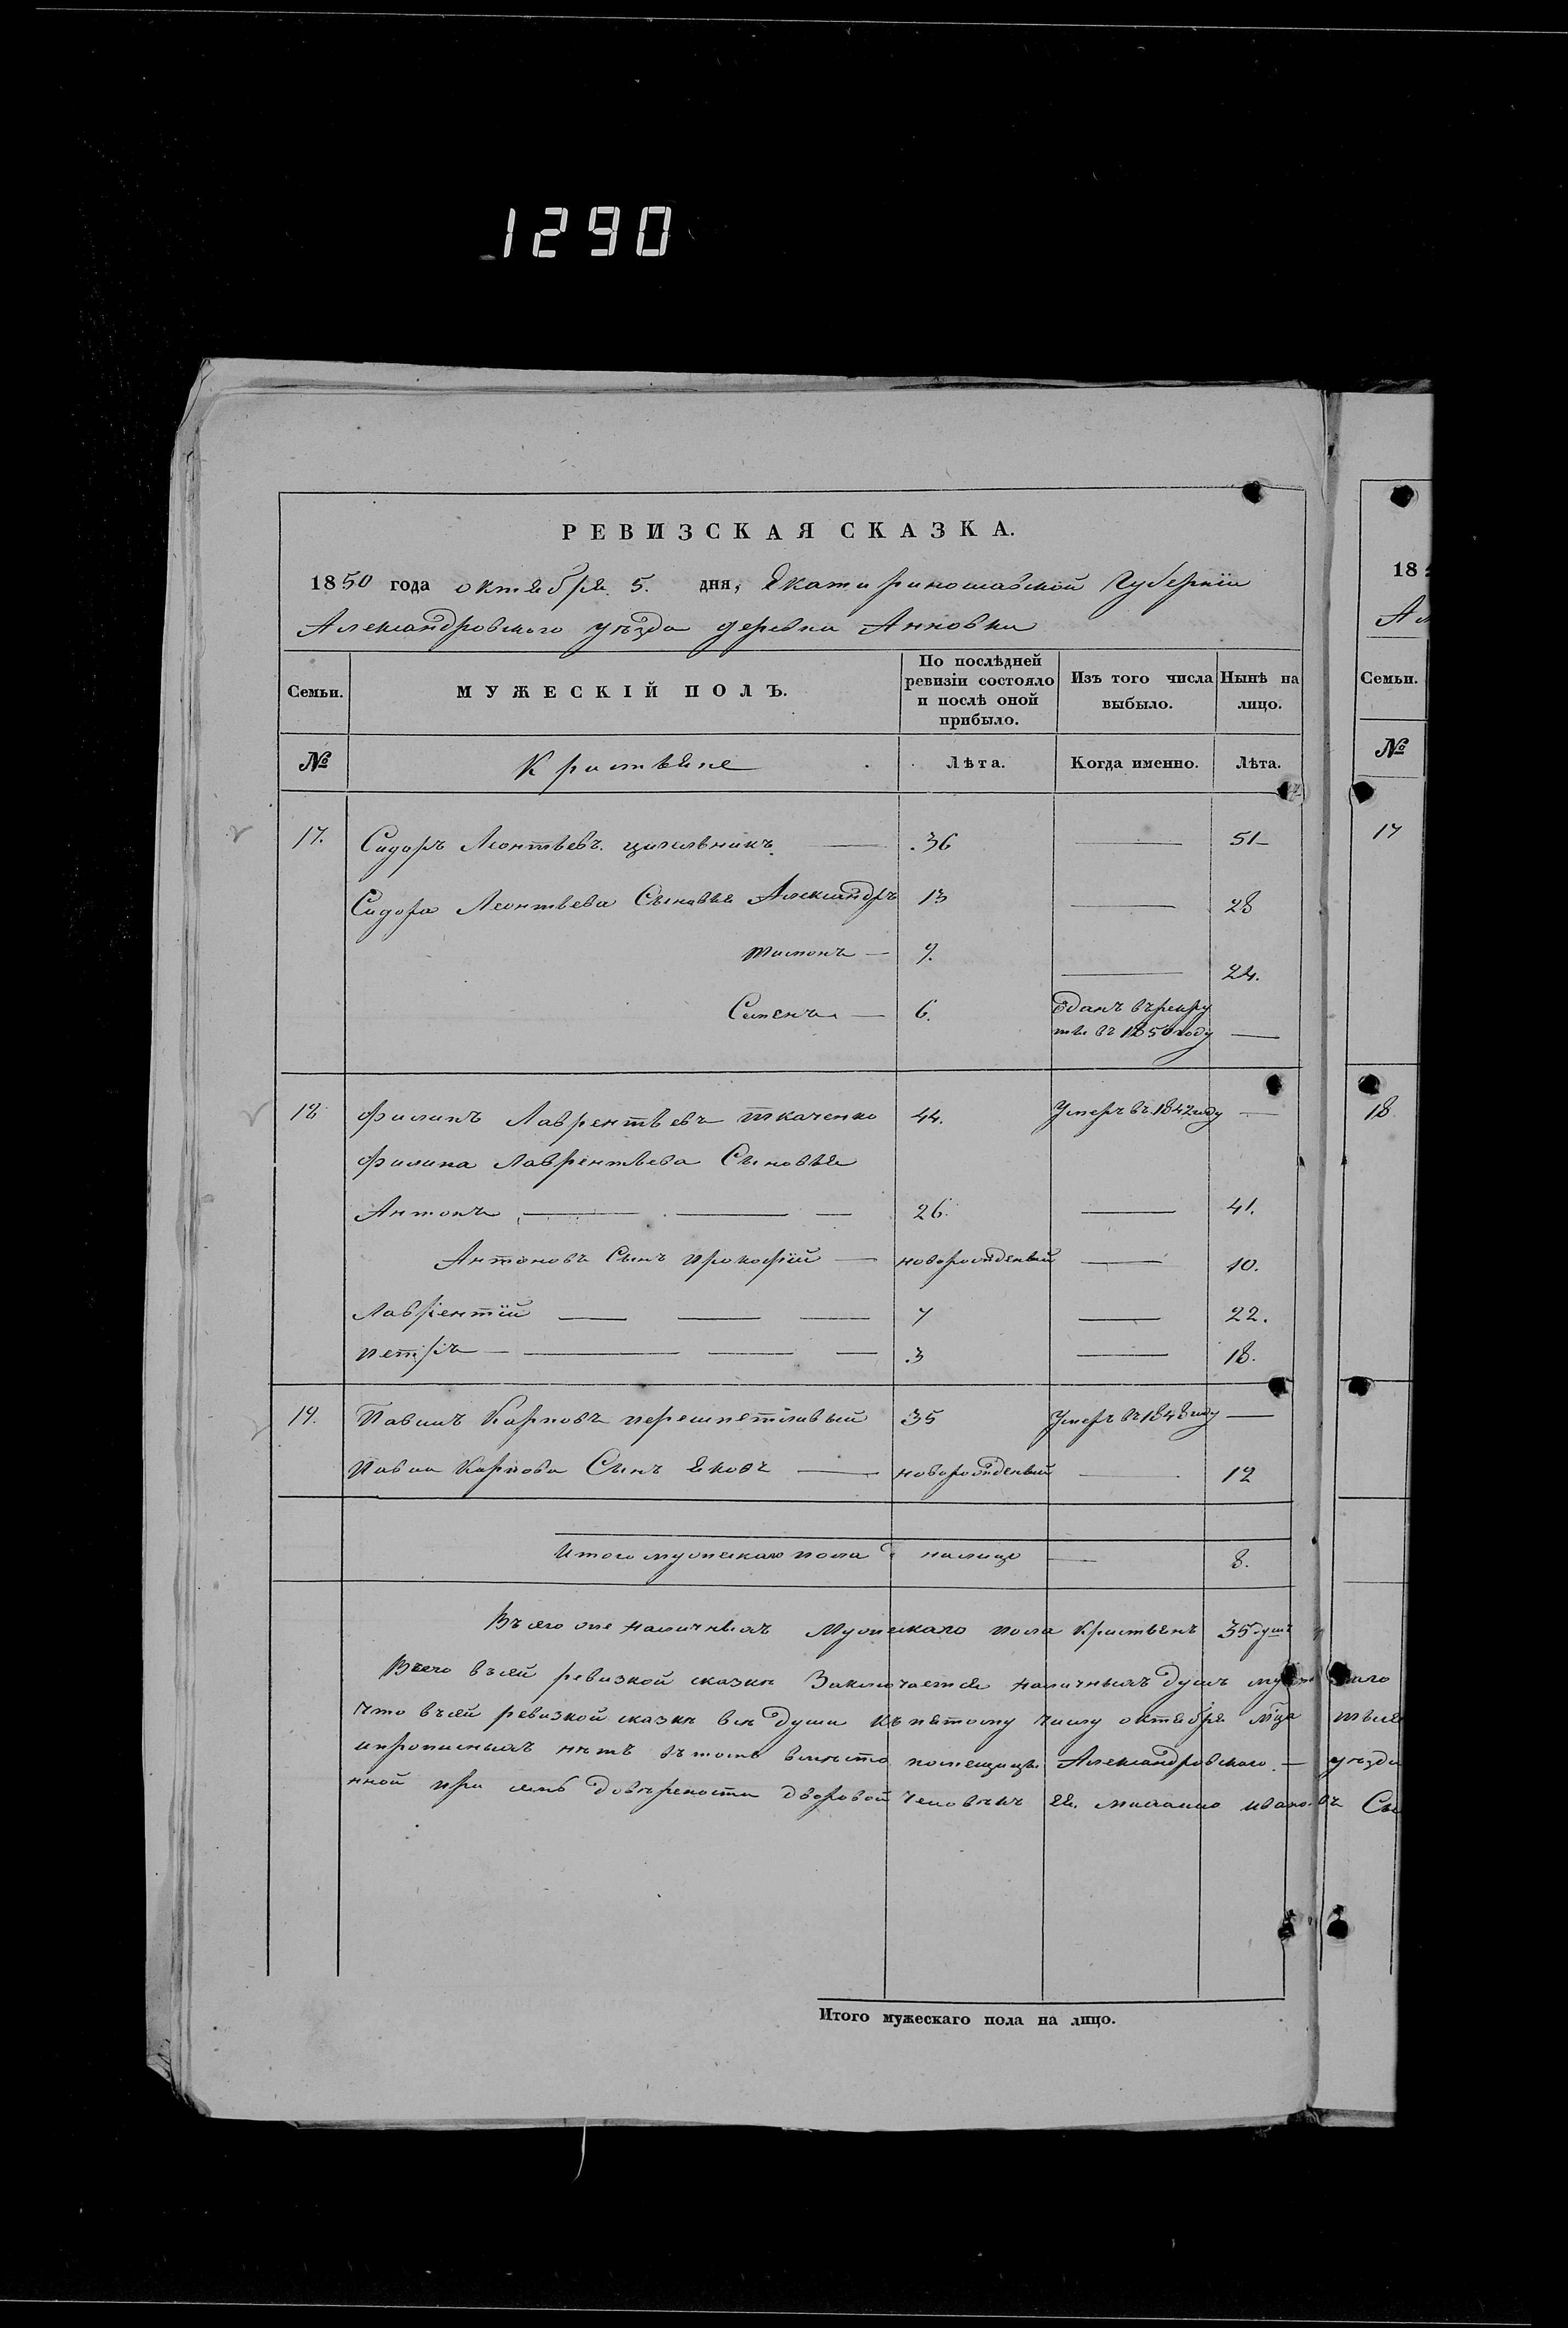 1290
РЕВИЗСКАЯ СКАЗКА.
1850 года октября 5. дня, Екатиринославской Губернiи
Александровского уѣзда деревни Анновки
Семьи. МУЖЕСКIЙ ПОЛЪ. По послѣдней ревизiи состояло и послѣ оной прибыло. Изъ того числа выбыло. Нынѣ на лицо.
№ Кристьяне Лѣта. Когда именно. Лѣта.
17. Сидоръ Леонтьевъ 36 51
Сидора Леонтьева Сыновья Александръ 13 28
9. 24.
Сименъ 6. Зданъ въ рекру
ты въ 1850 году
18 Филипъ Лаврентьевъ ткаченко 44. Умеръ въ 1842 году
Филипа Лаврентьева Сыновья
Антонъ 26. 41.
Антоновъ Сынъ прокофiй новорожденый 10.
Лаврентiй 7 22.
петръ 3 18.
19. Павилъ Карповъ 35 Умеръ въ 1848 году
Павла Карпова Сынъ Яковъ новорожденый 12
Итого мужескаго пола налицо 8.
Всего наличныхъ Мужескаго пола Кристьянъ 35 душъ
Всего въ сей ревизкой сказки Заключается наличныхъ душъ
что въ сей ревизкой сказки всѣ души къ пятому числу октября
ипрописныхъ нѣтъ вътомъ вместо помещицы Александровского уѣзда
дворовой человѣкъ ея ивановъ
Итого мужескаго пола на лицо.
18
Семьи.
№
17
18